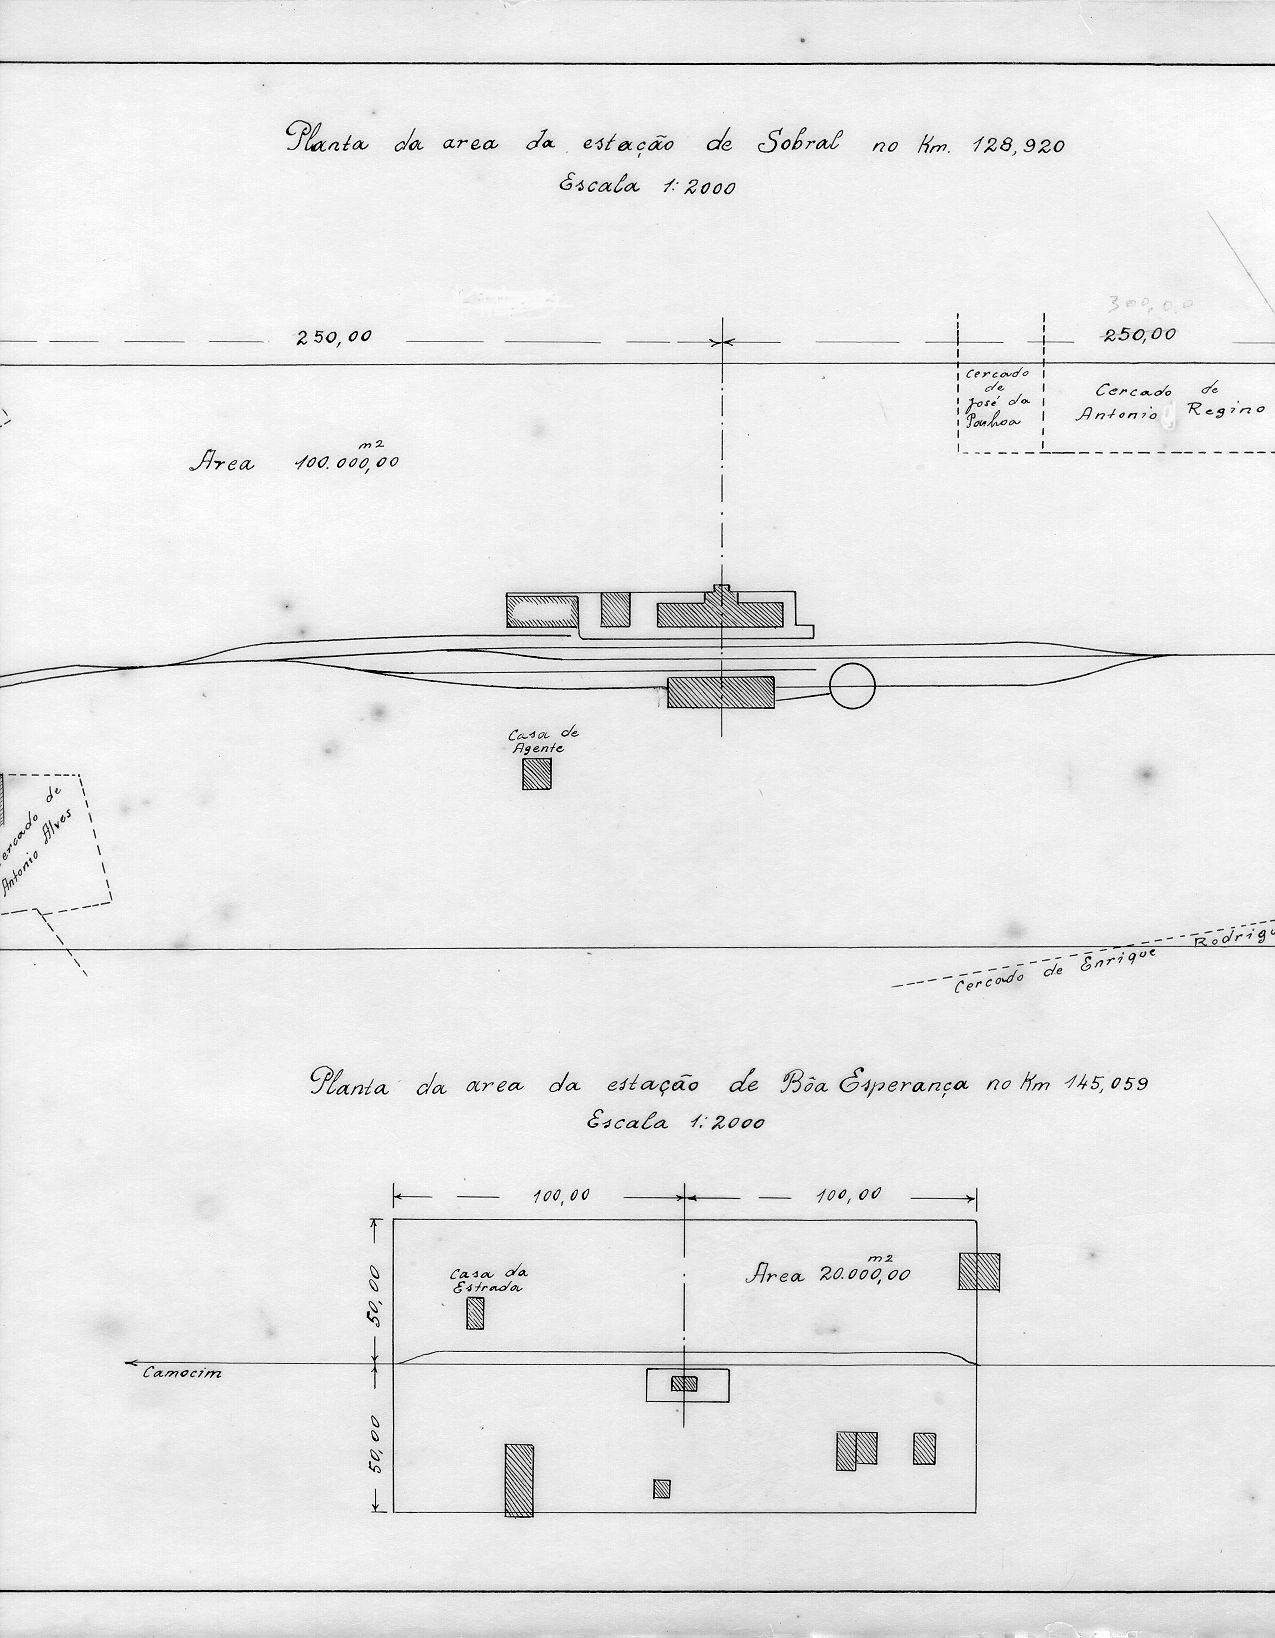 Planta da area da estação de Sobral no Km. 128,920
Escala 1:2000
300,00
250,00
250,00
Cercado
de
José da
Cercado de
Antonio Regino
m2
Area 100.000,00
Casa de
Agente
Cercado de
Antonio Alves
Cercado de Enrique Rodrigu
Planta da area da estação de Bôa Esperança no Km 145,059
Escala 1:2000
100,00
100,00
50,00
50,00
Casa da
Estrada
m2
Area 20.000,00
Camocim